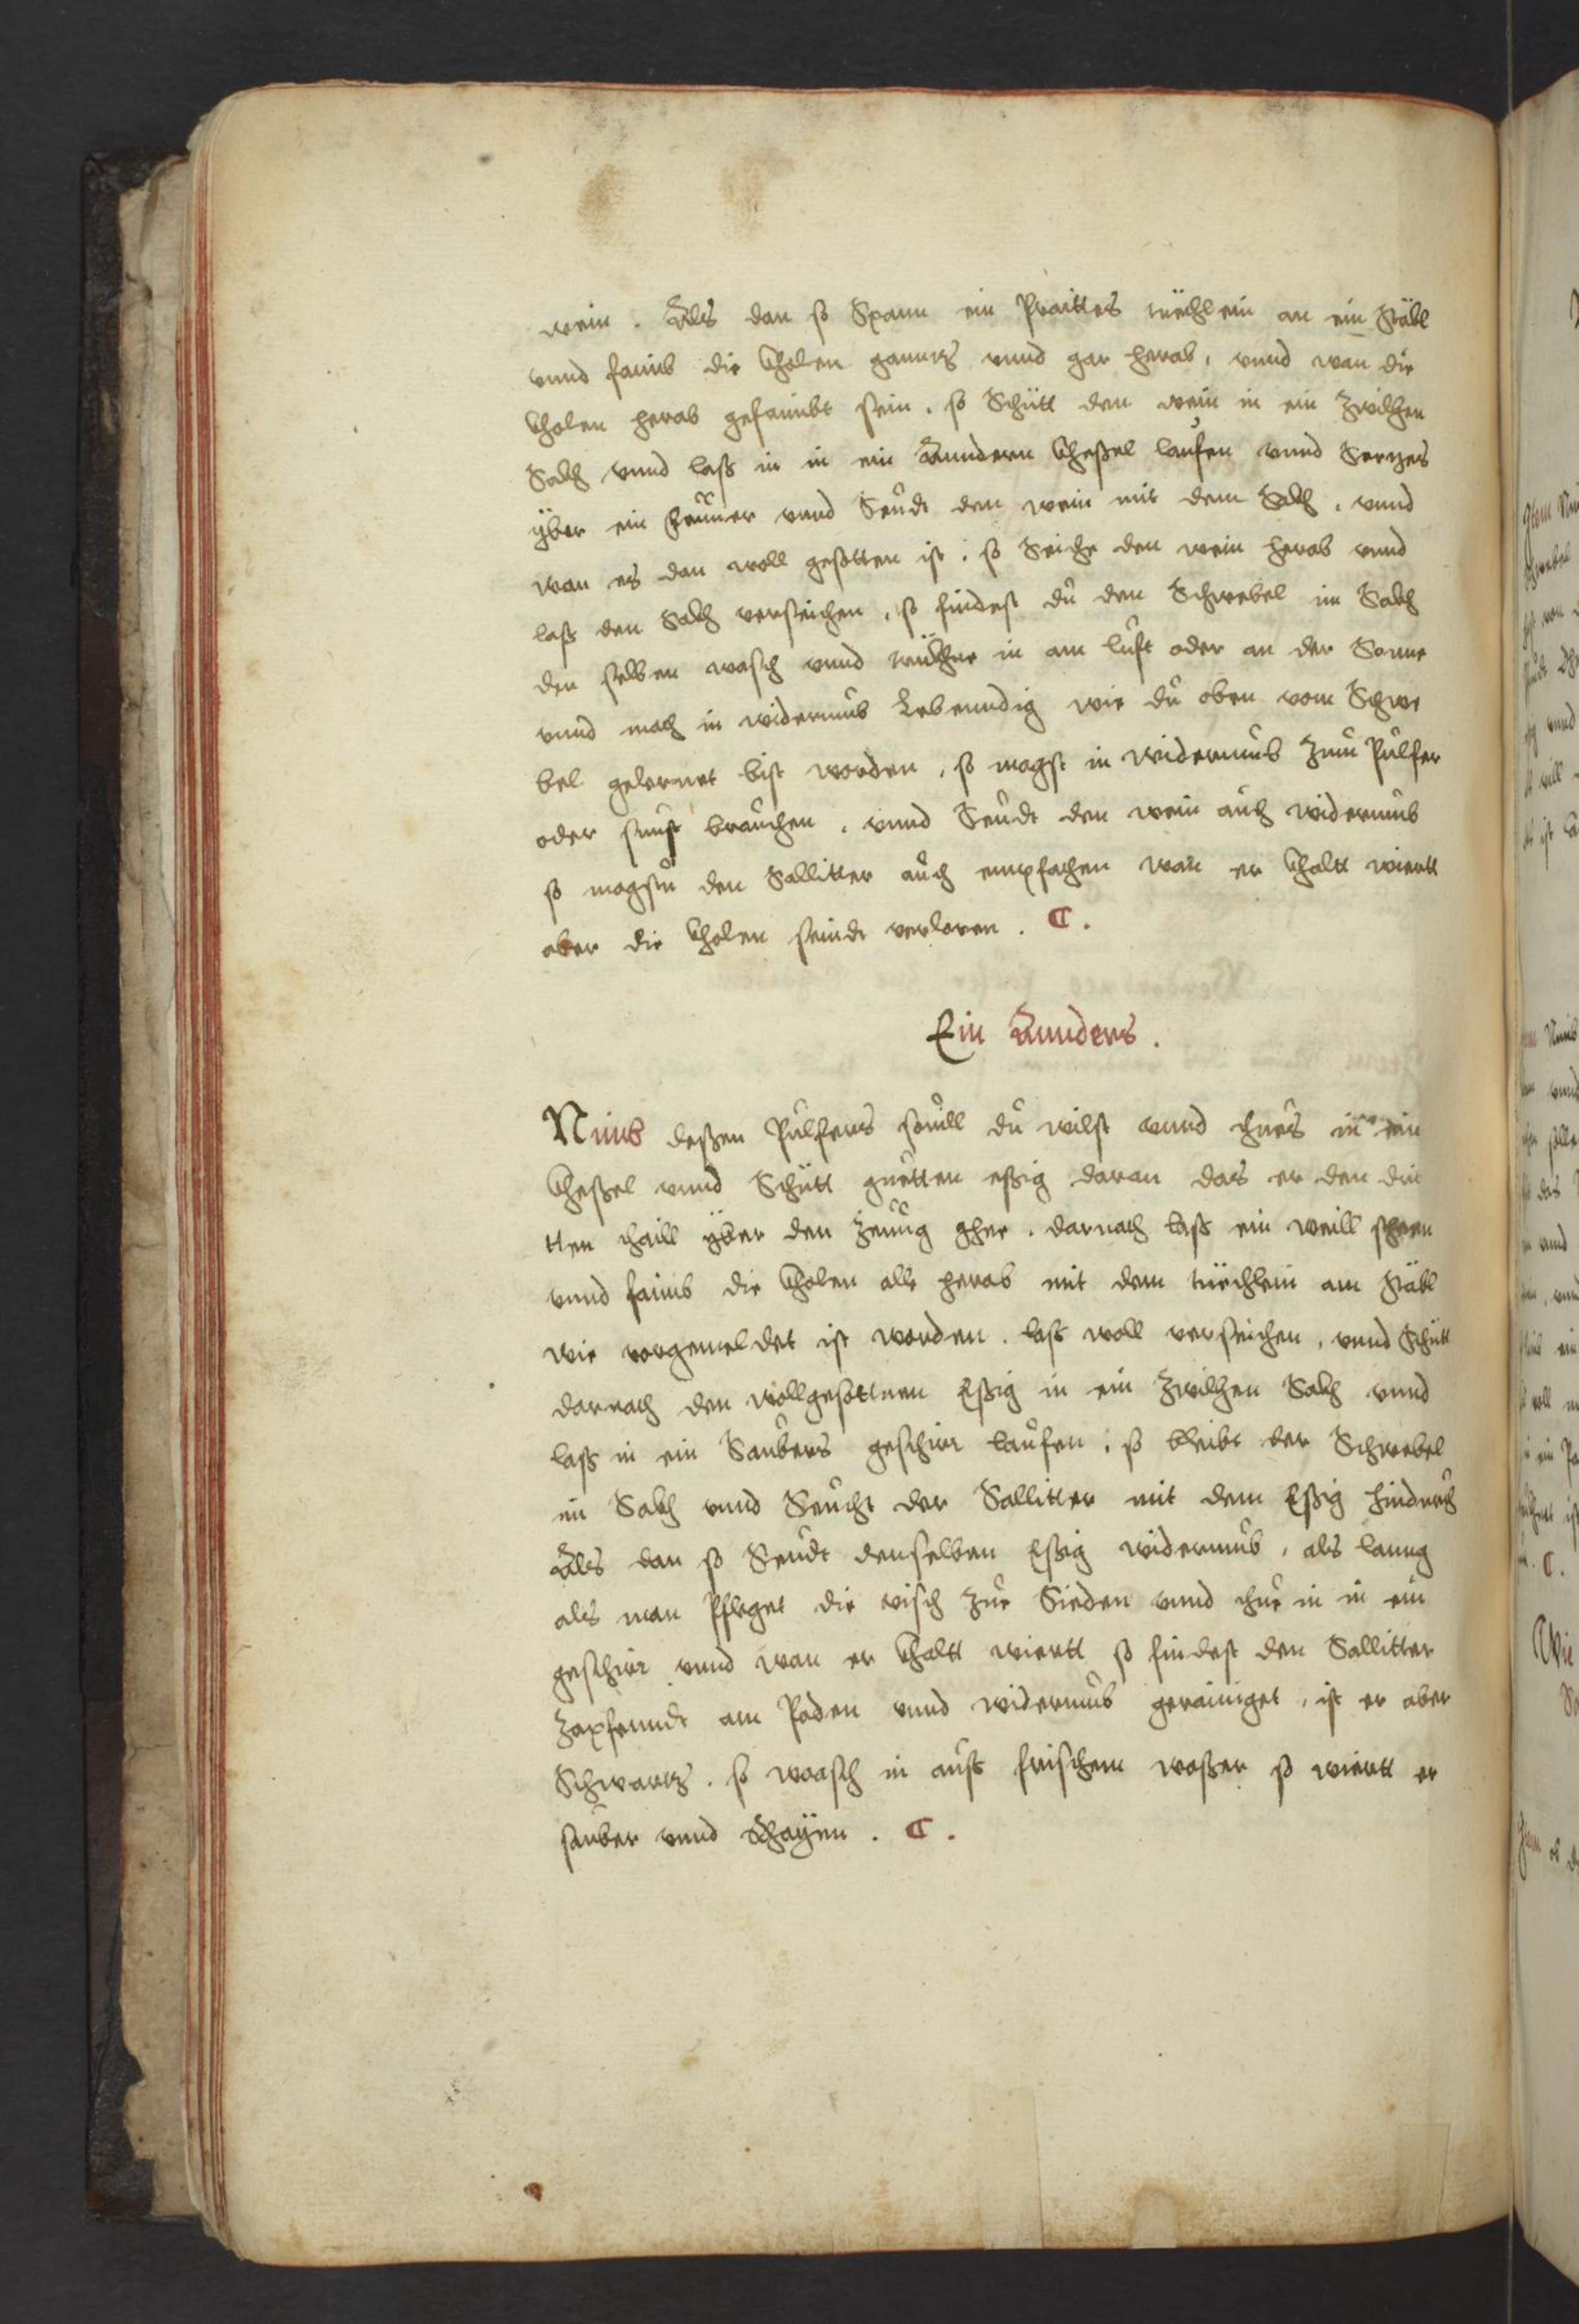 wein. Alls dan so Spann ein Praittes tüechlein an ein Stäbl
vnnd faimb die Kholen ganntz vnnd gar herab, vnnd wan die
Kholen herab gefaimbt sein, so Schütt den wein in ein Zwilchen
Sakh vnnd lasß in in ein Anndern Kheßel lauffen vnnd Setzes
yber ein Feüuer vnnd Seudt den wein mit dem Sakh, vnnd
wan es dan woll gesotten ist, so Seiche den wein herab vnnd
lasß den Sakh verseichen, so findest du den Schwebel im Sakh
den selben wasch vnnd trükhne in am lufft oder an der Sonne
vnnd mach in widerumb Lebenndig wie du oben vom Schwe
bel gelernet bist worden, so magst in widerumb Zum Pulfer
oder sunst brauchen, vnnd Seudt den wein auch widerumb
so magstu den Sallitter auch empfachen wan er Khaltt wiertt
aber die Kholen seindt verloren. C.
Ein Annders.
Nimb deßen Pulfers souill du wilst vnnd thues in ein
Kheßel vnnd Schütt guetten eßig daran das er den dri
tten thaill yber den Zeuug gher. darnach laß ein weill stheen
vnnd faimb die Kholen alle herab mit dem tüechlein am Stäbl
wie vorgemeldet ist worden. laß woll verseichen, vnnd Schütt
darnach den wollgesottnen Eßig in ein Zwilchen Sakh vnnd
laß in ein Saubers geschirr lauffen, so bleibt der Schwebel
im Sakh vnnd Seücht der Sallitter mit dem Eßig hindurch
Alls dan so Seudt denselben Eßig widerumb, als lanng
als man Pfleget die visch zue Sieden vnnd thue in in ein
geschirr vnnd wan er Khaltt wiertt so findest den Sallitter
Zapfenndt am Poden vnnd widerumb gerainiget, ist er aber
Schwartz, so waasch in auß frischem waßer so wiertt er
sauber vnnd schayen. C.